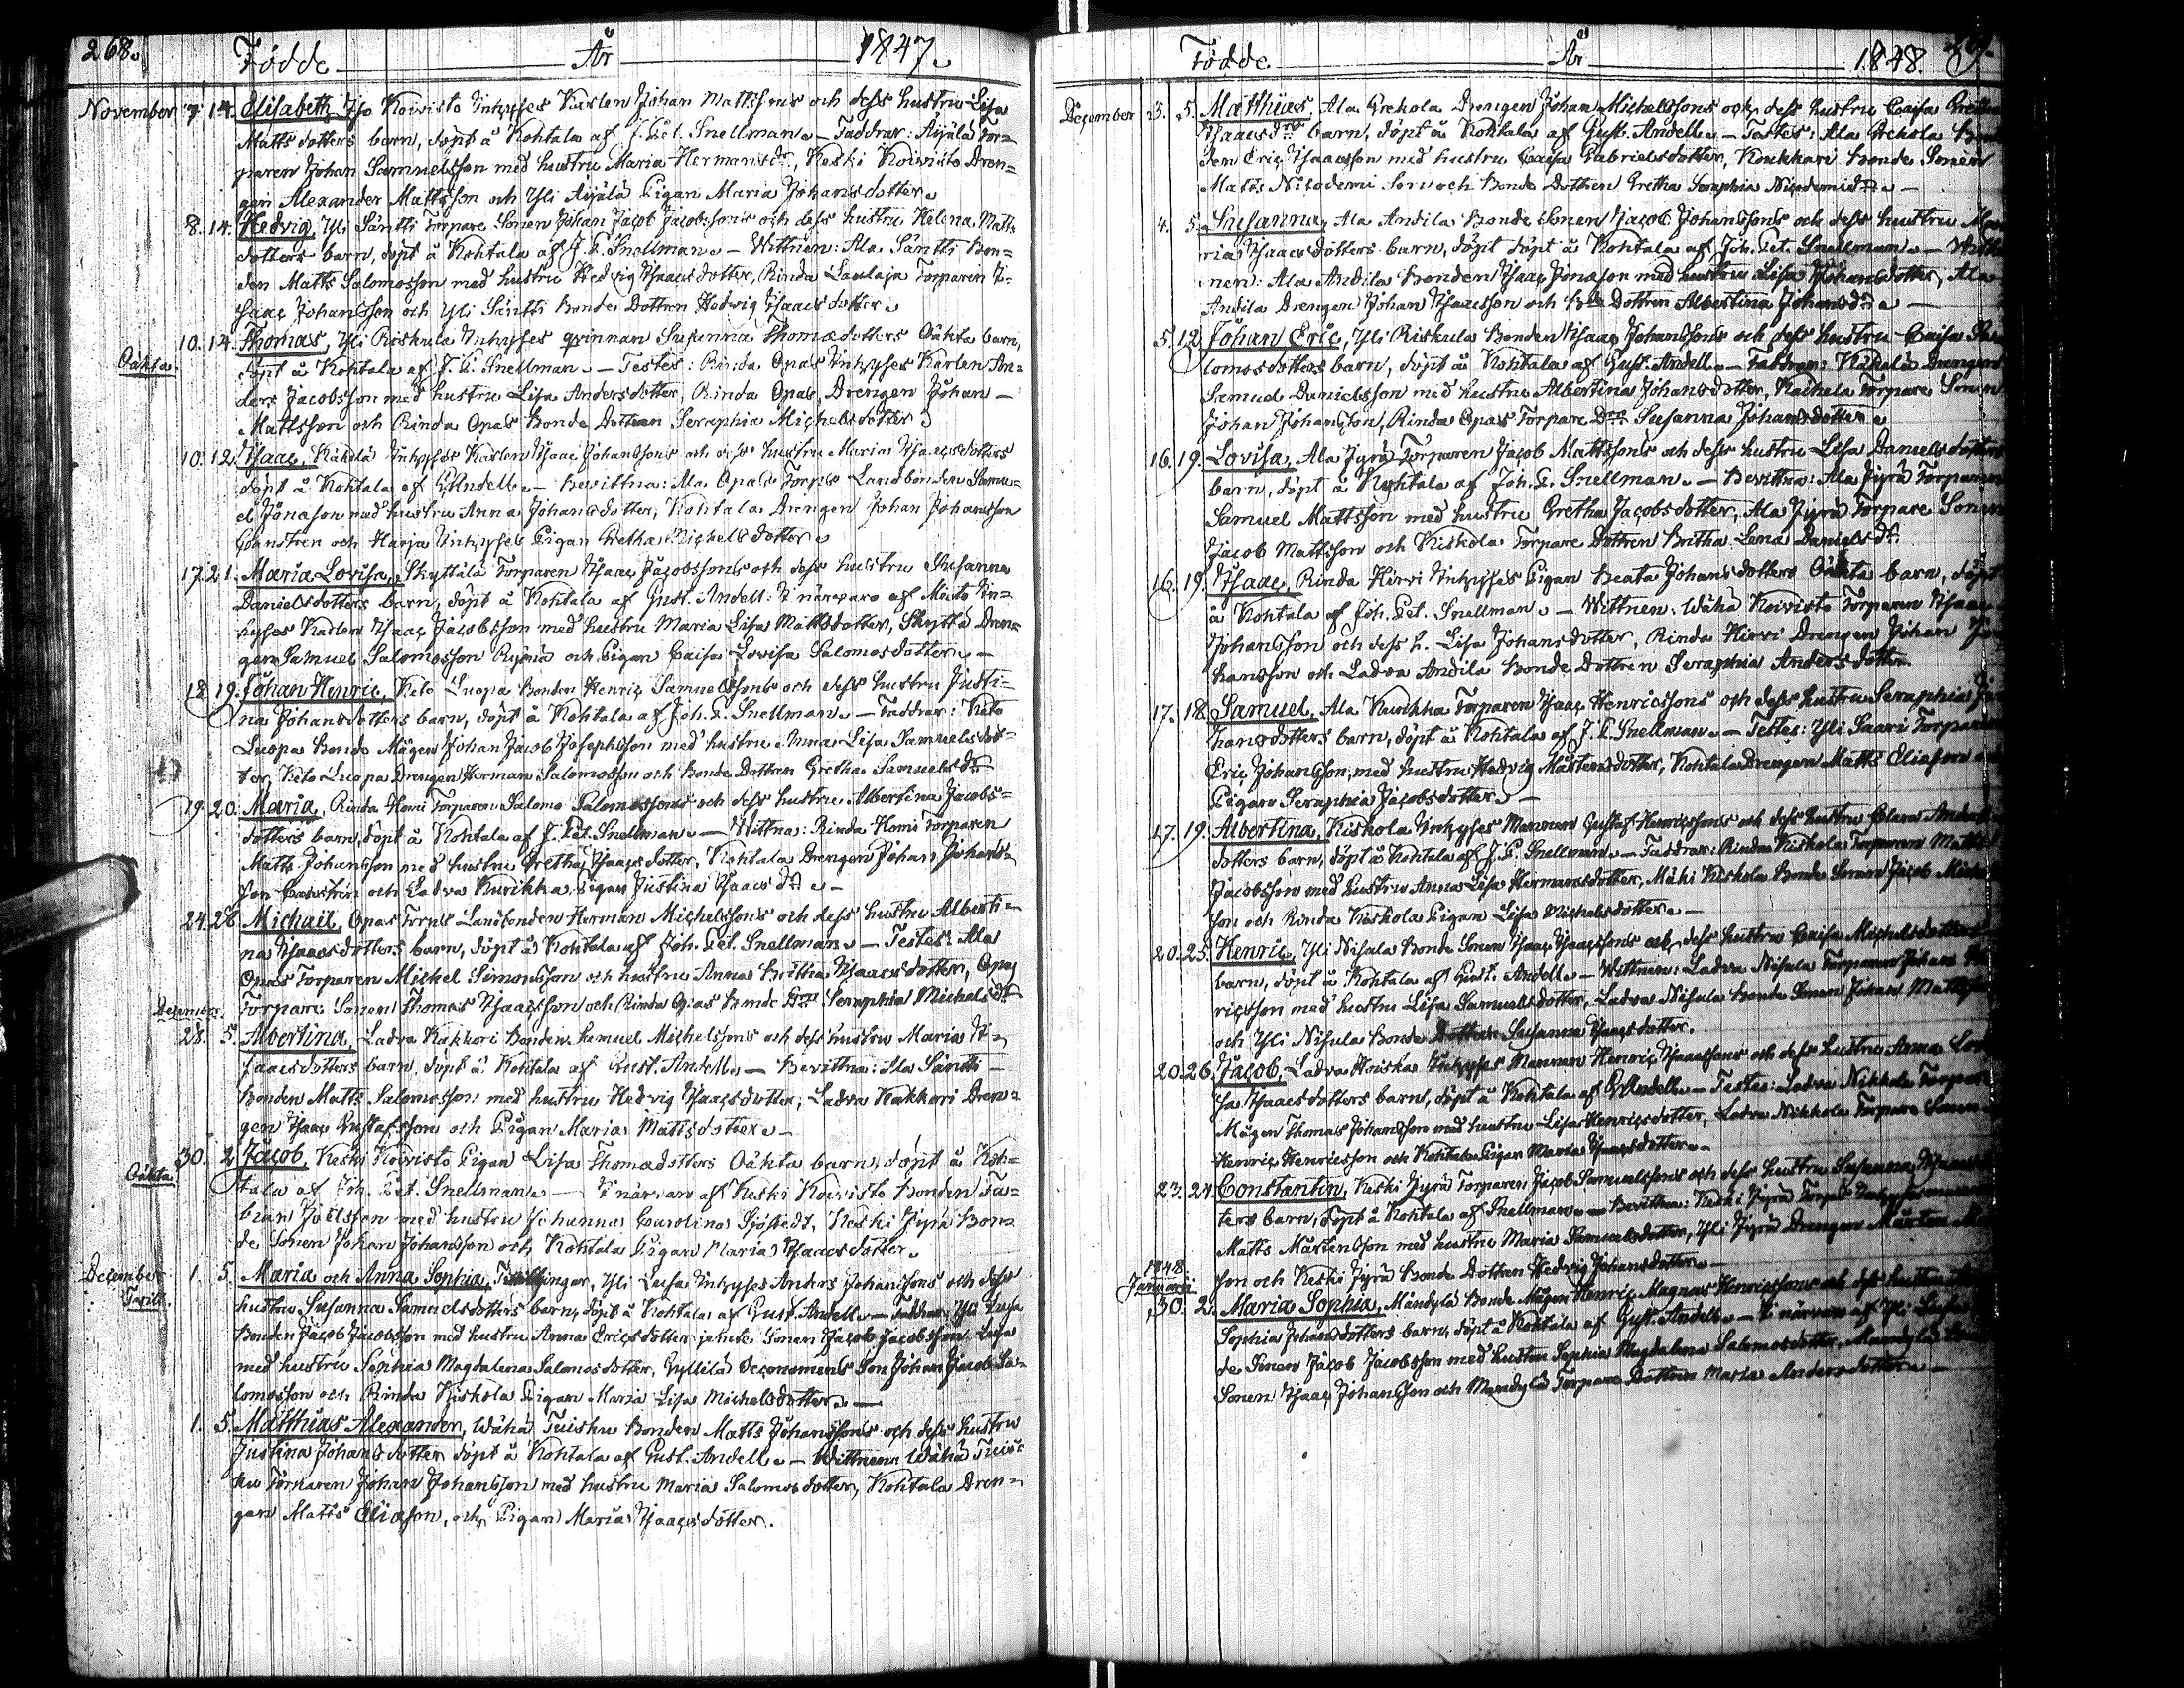 268.
Födde År 1847.
November 7 14. Elisabeth, Iso Koivisto Inhyses Karlen Johan Mattssons och dess hustru Lisa
Matts dotters barn, döpt å Kohtala af J. Pet. Snellman. – Faddrar: Äijälä Tor=
paren Johan Samuelsson med hustru Maria Hermansdr, Keski Koivisto Dren=
gen Alexander Mattsson och Yli Äijälä Pigan Maria Johansdotter.
8. 14. Hedvig, Yli Säntti Torpare Sonen Johan Jacob Jacobssons och dess hustru Helena Matts
dotters barn, döpt å Kohtala af J. P. Snellman. – Wittnen: Ala Säntti Bon=
den Matts Salomosson med hustru Hedvig Isaacsdotter, Rinda Laulaja Torparen I=
saac Johansson och Yli Säntti Bonde Dottren Hedvig Isaacs dotter.
10. 14. Thomas, Yli Riskula Inhyses qvinnan Susanna Thomædotters Oäkta barn,
Oäkta.
döpt å Kohtala af J. P. Snellman. – Testes: Rinda Opas Inhyses Karlen An=
ders Jacobsson med hustru Lisa Andersdotter, Rinda Opas Drengen Johan –
Mattsson och Rinda Opas Bonde Dottren Seraphia Michelsdotter.
10. 12. Isaac, Käkelä Inhyses Karlen Isaac Johanssons och dess hustru Maria Isaacsdotters
döpt å Kohtala af G. Andell. – Bevittna: Ala Opas Torps Landbonden Samu=
el Jonasson med hustru Anna Johansdotter, Kohtala Drengen Johan Johansson
och Harja Inhyses Pigan Gretha Michels dotter.
17. 21. Maria Lovisa, Skyttälä Torparen Isaac Jacobssons och dess hustru Susanna
Danielsdotters barn, döpt å Kohtala af Gust. Andell: I närvaro af In=
hyses Karlen Isaac Jacobsson med hustru Maria Lisa Mattsdotter, Skyttä Dren=
gen Samuel Salomosson och Pigan Caisa Lovisa Salomosdotter. –
18. 19. Johan Henric, Keto Luopa Bonden Henric Samuelssons och dess hustru Justi=
na Johansdotters barn, döpt å Kohtala af Joh. P. Snellman. – Faddrar: Keto
Luopa Bonde Mågen Johan Jacob Josephsson med hustru Anna Lisa Samuelsdot=
ter, Keto Luopa Drengen Herman Salomosson och Bonde Dottren Gretha Samuelsdr
19. 20. Maria, Rinda Homi Torparen Salomo Salomossons och dess hustru Albertina Jacobs=
dotters barn, döpt å Kohtala af J. Pet. Snellman. – Wittna: Rinda Homi Torparen
Matts Johansson med hustru Gretha Isaacsdotter, Kohtala Drengen Johan Johans=
son och Ladva Kurikka Pigan Justina Isaacsdr. –
24. 26. Michail, Opas Torps Landbonden Herman Michelssons och dess hustru Alberti=
na Isaacsdotters barn, döpt å Kohtala af Joh. Pet. Snellman. – Testes: Ala
Opas Torparen Michel Simonsson och hustru Anna Britha Isaacsdotter, Opas
Torpare Sonen Thomas Isaacsson och Rinda Opas Bonde Dttr Seraphia Michelsdr
December.
28. 5. Albertina, Ladva Kakkori Bonden Samuel Michelssons och dess hustru Maria I=
saacsdotters barn, döpt å Kohtala af Gust. Andell. – Bevittna: Ala Säntti –
Bonden Matts Salomosson med hustru Hedvig Isaacsdotter, Ladva Kakkori Dren=
gen Isaac Gustafsson och Pigan Maria Mattsdotter. –
30. 2. Jacob, Keski Koivisto Pigan Lisa Thomædotters Oäkta barn, döpt å Koh=
Oäkta
tala af Joh. Pet. Snellman. – I närvaro af Keski Koivisto Bonden Fa=
bian Joelsson med hustru Johanna Carolina Sjöstedt, Keski Jyrä Bon=
de Sonen Johan Johansson och Kohtala Pigan Maria Isaacsdotter.
December 1. 5. Maria och Anna Sophia, Tvillingar, Yli Luopa Inhyses Anders Johanssons och dess
Twill.
hustru Susanna Samuelsdotters barn, döpt å Kohtala af Gust. Andell. – Faddrar: Yli Luopa
Bonden Jacob Jacobsson med hustru Anna Ericsdotter jemte Sonen Jacob Jacobsson Luopa
med hustru Sophia Magdalena Salomosdotter, Gyllilä Oeconomens Son Johan Jacob Sa=
lomosson och Rinda Kiskola Pigan Maria Lisa Michelsdotter. –
1. 5. Matthias Alexander, Wähä Tuisku Bonden Matts Johanssons och dess hustru
Justina Johans dotter döpt å Kohtala af Gust. Andell. – Wittnen: Wähä Tuis=
ku Torparen Johan Johansson med hustru Maria Salomosdotter, Kohtala Dren=
gen Matts Eliasson, och Pigan Maria Isaacsdotter.
Födde År 1848.
December 3. 5. Mathias, Ala Grekola Drengen Johan Michelssons och dess hustru Caisa Gretha
Isaacsdrs barn, döpt å Kohtala af Gust. Andell. – Testes: Ala Grekola Bon
den Eric Isaacsson med hustru Caisa Gabrielsdotter, Koukkari Bonde Sonen
Matts Nicodemi Son och Bonde Dottren Gretha Seraphia Nicodemidr. –
4. 5. Susanna, Ala Andila Bonde Sonen Jacob Johanssons och dess hustru Ma
ria Isaacsdotters barn, döpt döpt å Kohtala af Joh. Pet. Snellman. – Witt
nen: Ala Andila Bonden Isaac Jonasson med hustru Lisa Johansdotter, Ala
Andila Drengen Johan Isaacsson och Bde Dottren Albertina Johansdr. –
5. 12. Johan Eric, Yli Riskula Bonden Isaac Johanssons och dess hustru Caisa Sa
lomosdotters barn, döpt å Kohtala af Gust. Andell. – Faddrar: Käkelä Drengen
Samuel Danielsson med hustru Albertina Johansdotter, Torpare Sonen
Johan Johansson, Rinda Opas Torpare Dttr Susanna Johansdotter.
16. 19. Lovisa, Ala Jyrä Torparen Jacob Mattssons och dess hustru Lisa Danielsdotters
barn, döpt å Kohtala af Joh. P. Snellman. – Bevittna: Ala Jyrä Torparen
Samuel Mattsson med hustru Gretha Jacobsdotter, Ala Jyrä Torpare Sonen
Jacob Mattsson och Kiskola Torpare Dottren Britha Lena Danielsdr.
16. 19. Isaac, Rinda Hirvi Inhyses Pigan Beata Johansdotters Oäkta barn, döpt
å Kohtala af Joh. Pet. Snellman. – Wittnen: Wähä Koivisto Torparen Isaac
Johansson och dess h. Lisa Johansdotter, Rinda Hirvi Drengen Johan Jo
hansson och Ladva Andila Bonde Dottren Seraphia Andersdotter.
17. 18. Samuel, Ala Kurikka Torparen Isaac Henricssons och dess hustru Seraphia Jo
hansdotters barn, döpt å Kohtala af J. P. Snellman. – Testes: Yli Saari Torparen
Eric Johansson, med hustru Hedvig Mårtensdotter, Kohtala Drengen Matts Eliasson
Pigan Seraphia Jacobsdotter. –
17. 19. Albertina, Kiskola Inhyses Mannen Gustaf Henricssons och dess hustru Clara Anders
dotters barn, döpt å Kohtala af J. P. Snellman. – Faddrar: Rinda Kiskola Torparen Matts
Jacobsson med hustru Anna Lisa Hermansdotter, Mäki Kiskola Bonde Sonen Jacob
son och Rinda Kiskola Pigan Lisa Michelsdotter. –
20. 25. Henric, Yli Nisula Bonde Sonen Isaac Isaacssons och dess hustru Caisa Michelsdotters
barn, döpt å Kohtala af Gust. Andell. – Wittnen: Ladva Nisula Torparen Johan
ricsson med hustru Lisa Samuelsdotter, Ladva Nisula Bonde Sonen Johan Mattsson
och Yli Nisula Bonde Dottren Susanna Isaacsdotter.
20. 26. Jacob, Ladva Inhyses Mannen Henric Isaacssons och dess hustru Anna Lovi
sa Isaacsdotters barn, döpt å Kohtala af G. Andell. – Testes: Ladva Nikkola Torpare
Mågen Thomas Johansson med hustru Lisa Henricsdotter, Ladva Nikkola Torpare Sonen
Henric Henricsson och Kohtala Pigan Maria Isaacsdotter. –
23. 24. Constantin, Keski Jyrä Torparen Jacob Samuelssons och dess hustru Susanna
ters barn, döpt å Kohtala af Snellman. – Bevittna: Keski Jyrä Torps
Matts Mårtensson med hustru Maria Samuelsdotter, Yli Jyrä Drengen Mårten
son och Keski Jyrä Bonde Dottren Hedvig Johansdotter. –
1848.
Januarii
30. 2. Maria Sophia, Mändylä Bonde Mågen Henric Magnus Henricssons och dess hustru
Sophia Johansdotters barn, döpt å Kohtala af Gust. Andell. – I närvaro af Yli
de Sonen Jacob Jacobsson med hustru Sophia Magdalena Salomosdotter, Mändylä
Sonen Isaac Johansson och Mändylä Torpare Dottren Maria Andersdotter. –